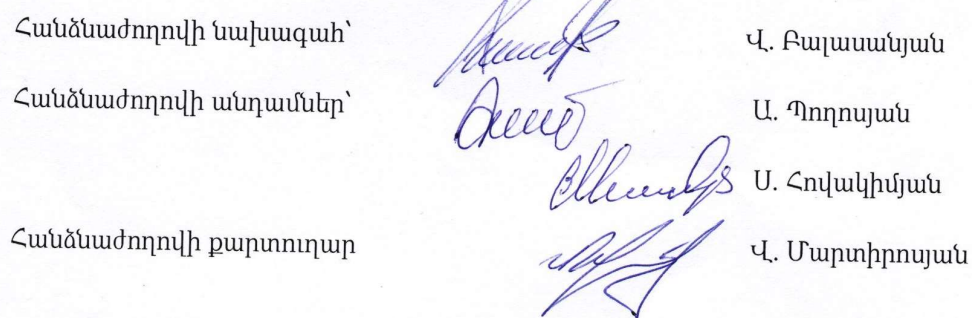 Հանձնաժողովի նախագահ՝ Վ. Բալասանյան
Հանձնաժողովի անդամներ՝ Ա. Պողոսյան
Ս. Հովակիմյան
Հանձնաժողովի քարտուղար Վ. Մարտիրոսյան